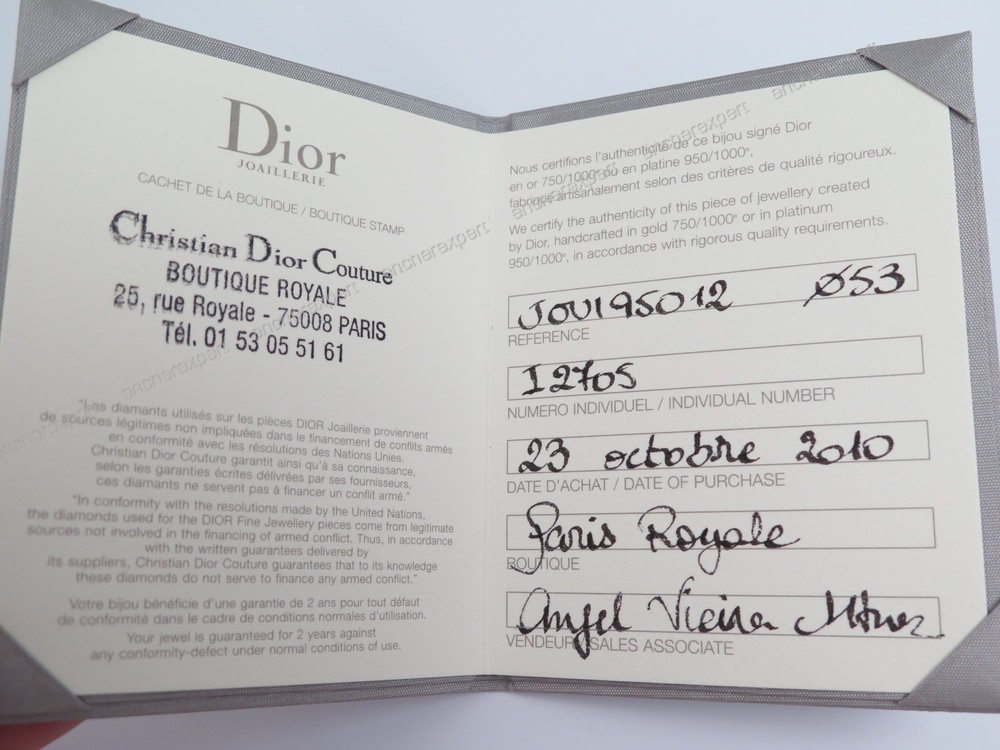 Dior
JOAILLERIE
CACHET DE LA BOUTIQUE / BOUTIQUE STAMP
Christian Dior Couture
BOUTIQUE ROYALE
25, rue Royale - 75008 PARIS
Tél. 01 53 05 51 61
"Les diamants utilisés sur les pièces DIOR Joaillerie proviennent
de sources légitimes non impliquées dans le financement de conflits armés
en conformité avec les résolutions des Nations Unies.
Christian Dior Couture garantit ainsi qu'à sa connaissance,
selon les garanties écrites délivrées par ses fournisseurs,
ces diamants ne servent pas à financer un conflit armé."
"In conformity with the resolutions made by the United Nations,
the diamonds used for the DIOR Fine Jewellery pieces come from legitimate
sources not involved in the financing of armed conflict. Thus, in accordance
with the written guarantees delivered by
its suppliers, Christian Dior Couture guarantees that to its knowledge
these diamonds do not serve to finance any armed conflict."
Votre bijou bénéficie d'une garantie de 2 ans pour tout défaut
de conformité dans le cadre de conditions normales d'utilisation.
Your jewel is guaranteed for 2 years against
any conformity-defect under normal conditions of use.
Nous certifions l'authenticité de ce bijou signé Dior
en or 750/1000e ou en platine 950/1000e,
fabriqué artisanalement selon des critères de qualité rigoureux.
We certify the authenticity of this piece of jewellery created
by Dior, handcrafted in gold 750/1000e or in platinum
950/1000e, in accordance with rigorous quality requirements.
JOUI95012 Ø53
REFERENCE
I2705
NUMERO INDIVIDUEL / INDIVIDUAL NUMBER
23 octobre 2010
DATE D'ACHAT / DATE OF PURCHASE
Paris Royale
BOUTIQUE
Angel Vieira
VENDEUR / SALES ASSOCIATE